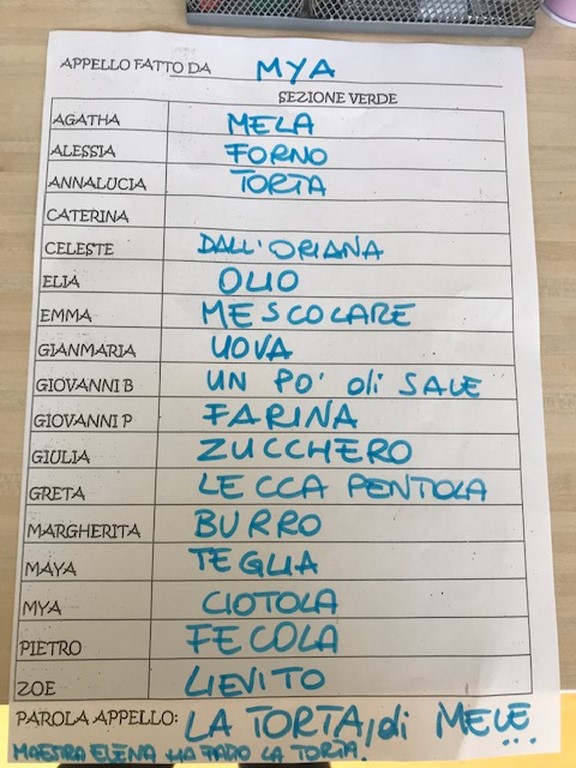 APPELLO FATTO DA MYA
SEZIONE VERDE
AGATHA MELA
ALESSIA FORNO
ANNALUCIA TORTA
CATERINA
CELESTE DALL'ORIANA
ELIA OLIO
EMMA MESCOLARE
GIANMARIA UOVA
GIOVANNI B UN PO' di SALE
GIOVANNI P FARINA
GIULIA ZUCCHERO
GRETA LECCA PENTOLA
MARGHERITA BURRO
MAYA TEGLIA
MYA CIOTOLA
PIETRO FECOLA
ZOE LIEVITO
PAROLA APPELLO: LA TORTA, di MELE...
MAESTRA ELENA HA FATTO LA TORTA.